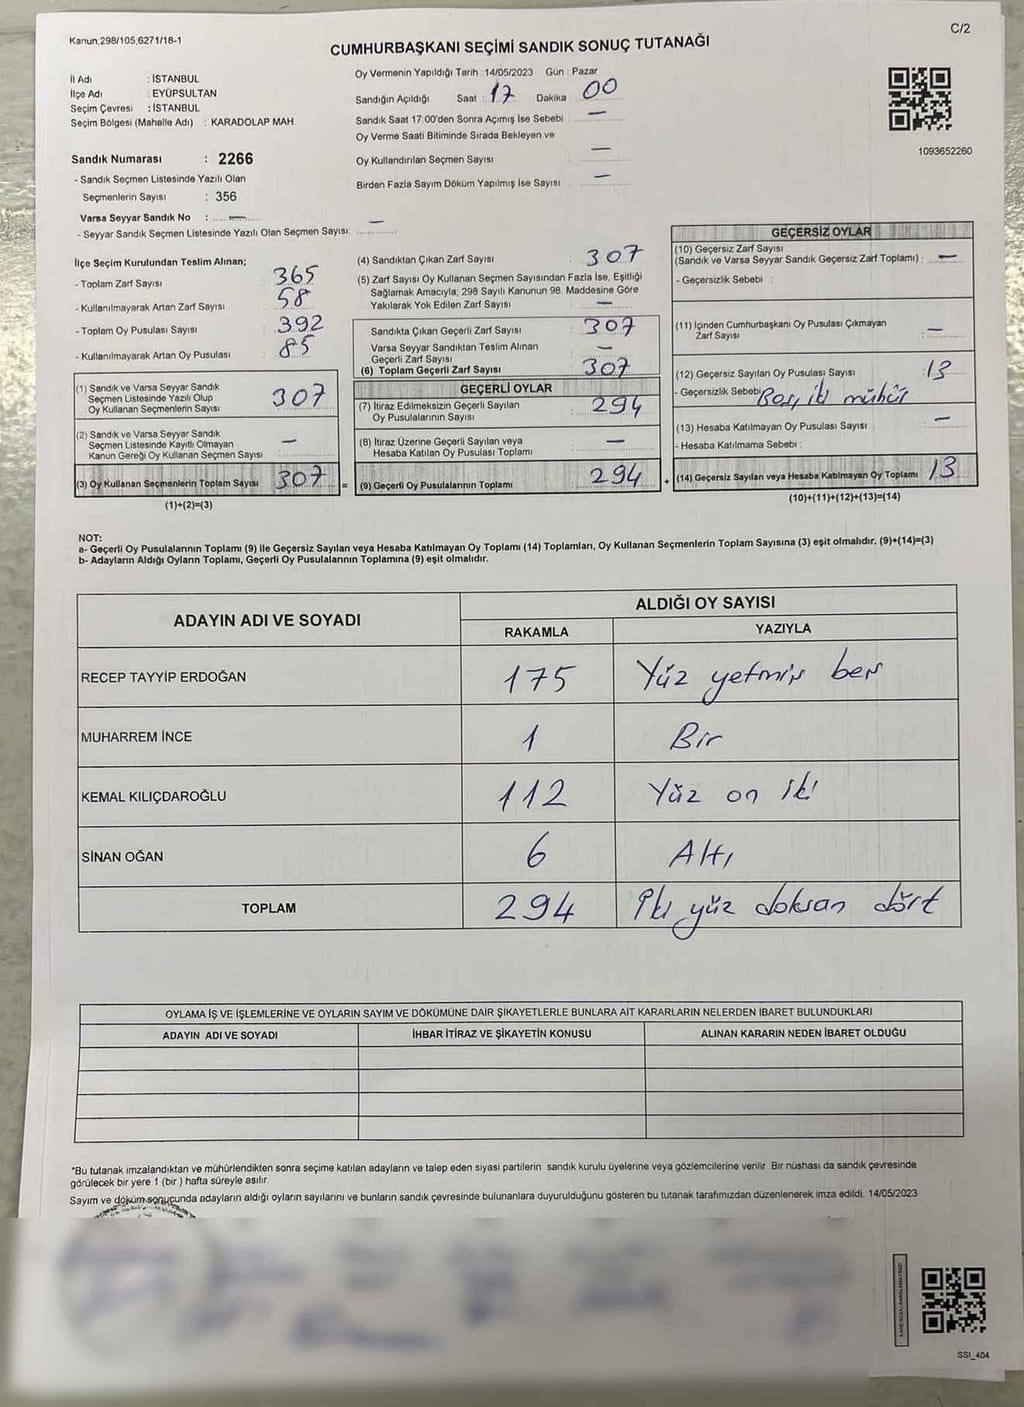 Kanun,298/105,6271/18-1
C/2
CUMHURBAŞKANI SEÇİMİ SANDIK SONUÇ TUTANAĞI
İl Adı : İSTANBUL
İlçe Adı : EYÜPSULTAN
Seçim Çevresi : İSTANBUL
Seçim Bölgesi (Mahalle Adı) : KARADOLAP MAH
Sandık Numarası : 2266
- Sandık Seçmen Listesinde Yazılı Olan
Seçmenlerin Sayısı : 356
Varsa Seyyar Sandık No : —
- Seyyar Sandık Seçmen Listesinde Yazılı Olan Seçmen Sayısı: —
Oy Vermenin Yapıldığı Tarih : 14/05/2023 Gün : Pazar
Sandığın Açıldığı Saat : 17 Dakika : 00
Sandık Saat 17.00'den Sonra Açımış İse Sebebi : —
Oy Verme Saati Bitiminde Sırada Bekleyen ve
Oy Kullandırılan Seçmen Sayısı : —
Birden Fazla Sayım Döküm Yapılmış İse Sayısı : —
1093652260
İlçe Seçim Kurulundan Teslim Alınan;
- Toplam Zarf Sayısı : 365
- Kullanılmayarak Artan Zarf Sayısı : 58
- Toplam Oy Pusulası Sayısı : 392
- Kullanılmayarak Artan Oy Pusulası : 85
(1) Sandık ve Varsa Seyyar Sandık
Seçmen Listesinde Yazılı Olup
Oy Kullanan Seçmenlerin Sayısı : 307
(2) Sandık ve Varsa Seyyar Sandık
Seçmen Listesinde Kayıtlı Olmayan
Kanun Gereği Oy Kullanan Seçmen Sayısı : —
(3) Oy Kullanan Seçmenlerin Toplam Sayısı 307 =
(1)+(2)=(3)
(4) Sandıktan Çıkan Zarf Sayısı : 307
(5) Zarf Sayısı Oy Kullanan Seçmen Sayısından Fazla İse, Eşitliği
Sağlamak Amacıyla; 298 Sayılı Kanunun 98. Maddesine Göre
Yakılarak Yok Edilen Zarf Sayısı : —
Sandıkta Çıkan Geçerli Zarf Sayısı : 307
Varsa Seyyar Sandıktan Teslim Alınan
Geçerli Zarf Sayısı : —
(6) Toplam Geçerli Zarf Sayısı : 307
GEÇERLİ OYLAR
(7) İtiraz Edilmeksizin Geçerli Sayılan
Oy Pusulalarının Sayısı : 294
(8) İtiraz Üzerine Geçerli Sayılan veya
Hesaba Katılan Oy Pusulası Toplamı : —
(9) Geçerli Oy Pusulalarının Toplamı : 294 +
GEÇERSİZ OYLAR
(10) Geçersiz Zarf Sayısı
(Sandık ve Varsa Seyyar Sandık Geçersiz Zarf Toplamı) : —
- Geçersizlik Sebebi :
(11) İçinden Cumhurbaşkanı Oy Pusulası Çıkmayan
Zarf Sayısı : —
(12) Geçersiz Sayılan Oy Pusulası Sayısı : 13
- Geçersizlik Sebebi: Boş, iki mühür
(13) Hesaba Katılmayan Oy Pusulası Sayısı : —
- Hesaba Katılmama Sebebi :
(14) Geçersiz Sayılan veya Hesaba Katılmayan Oy Toplamı 13
(10)+(11)+(12)+(13)=(14)
NOT:
a- Geçerli Oy Pusulalarının Toplamı (9) ile Geçersiz Sayılan veya Hesaba Katılmayan Oy Toplamı (14) Toplamları, Oy Kullanan Seçmenlerin Toplam Sayısına (3) eşit olmalıdır. (9)+(14)=(3)
b- Adayların Aldığı Oyların Toplamı, Geçerli Oy Pusulalarının Toplamına (9) eşit olmalıdır.
ADAYIN ADI VE SOYADI
ALDIĞI OY SAYISI
RAKAMLA YAZIYLA
RECEP TAYYİP ERDOĞAN 175 Yüz yetmiş beş
MUHARREM İNCE 1 Bir
KEMAL KILIÇDAROĞLU 112 Yüz on iki
SİNAN OĞAN 6 Altı
TOPLAM 294 İki yüz doksan dört
OYLAMA İŞ VE İŞLEMLERİNE VE OYLARIN SAYIM VE DÖKÜMÜNE DAİR ŞİKAYETLERLE BUNLARA AİT KARARLARIN NELERDEN İBARET BULUNDUKLARI
ADAYIN ADI VE SOYADI İHBAR İTİRAZ VE ŞİKAYETİN KONUSU ALINAN KARARIN NEDEN İBARET OLDUĞU
*Bu tutanak imzalandıktan ve mühürlendikten sonra seçime katılan adayların ve talep eden siyasi partilerin sandık kurulu üyelerine veya gözlemcilerine verilir. Bir nüshası da sandık çevresinde
görülecek bir yere 1 (bir) hafta süreyle asılır.
Sayım ve döküm sonucunda adayların aldığı oyların sayılarını ve bunların sandık çevresinde bulunanlara duyurulduğunu gösteren bu tutanak tarafımızdan düzenlenerek imza edildi. 14/05/2023
SSI_404